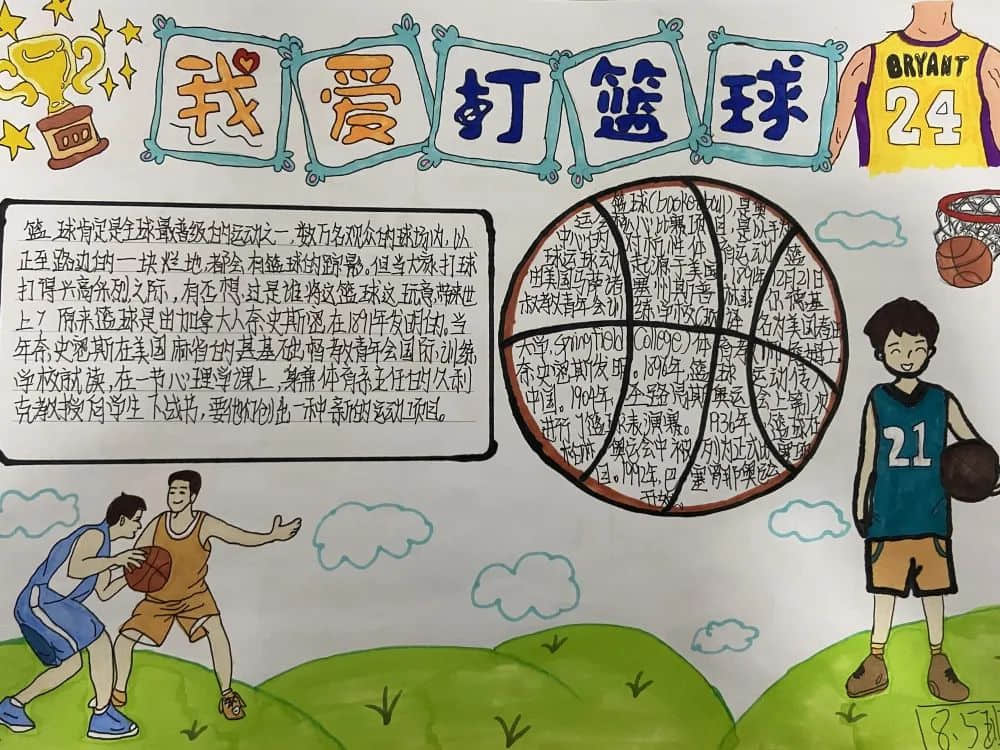 我爱打篮球
BRYANT
24
篮球肯定是全球最普级的运动之一,数万名观众的球场内,以
正至路边的一块烂地,都会有篮球的踪影。但当大家打球
打得兴高采烈之际,有否想过是谁将这篮球这玩意带来世
上?原来篮球是由加拿大人奈史斯密在1891年发明的。当
年奈史密斯在美国麻省的基基础督教青年会国际训练
学校就读,在一节心理学课上,兼体育系主任的久利
克教授向学生下战书,要他们创出一种新的运动项目。
是奥
运会核心比赛项目,是以手为
中心的
球运动
起源于美国。1891年12月21日
由美国马萨诸
教青年会训练学校
大学,Springfield College)体育
奈史密斯发明。1896年,篮球运动传入
中国。1904年,圣路易斯奥运会上第1次
进行了篮球表演赛。1936年,篮球在
柏林奥运会中被列为正式
目。1992年,巴塞
开始。
21
8.5